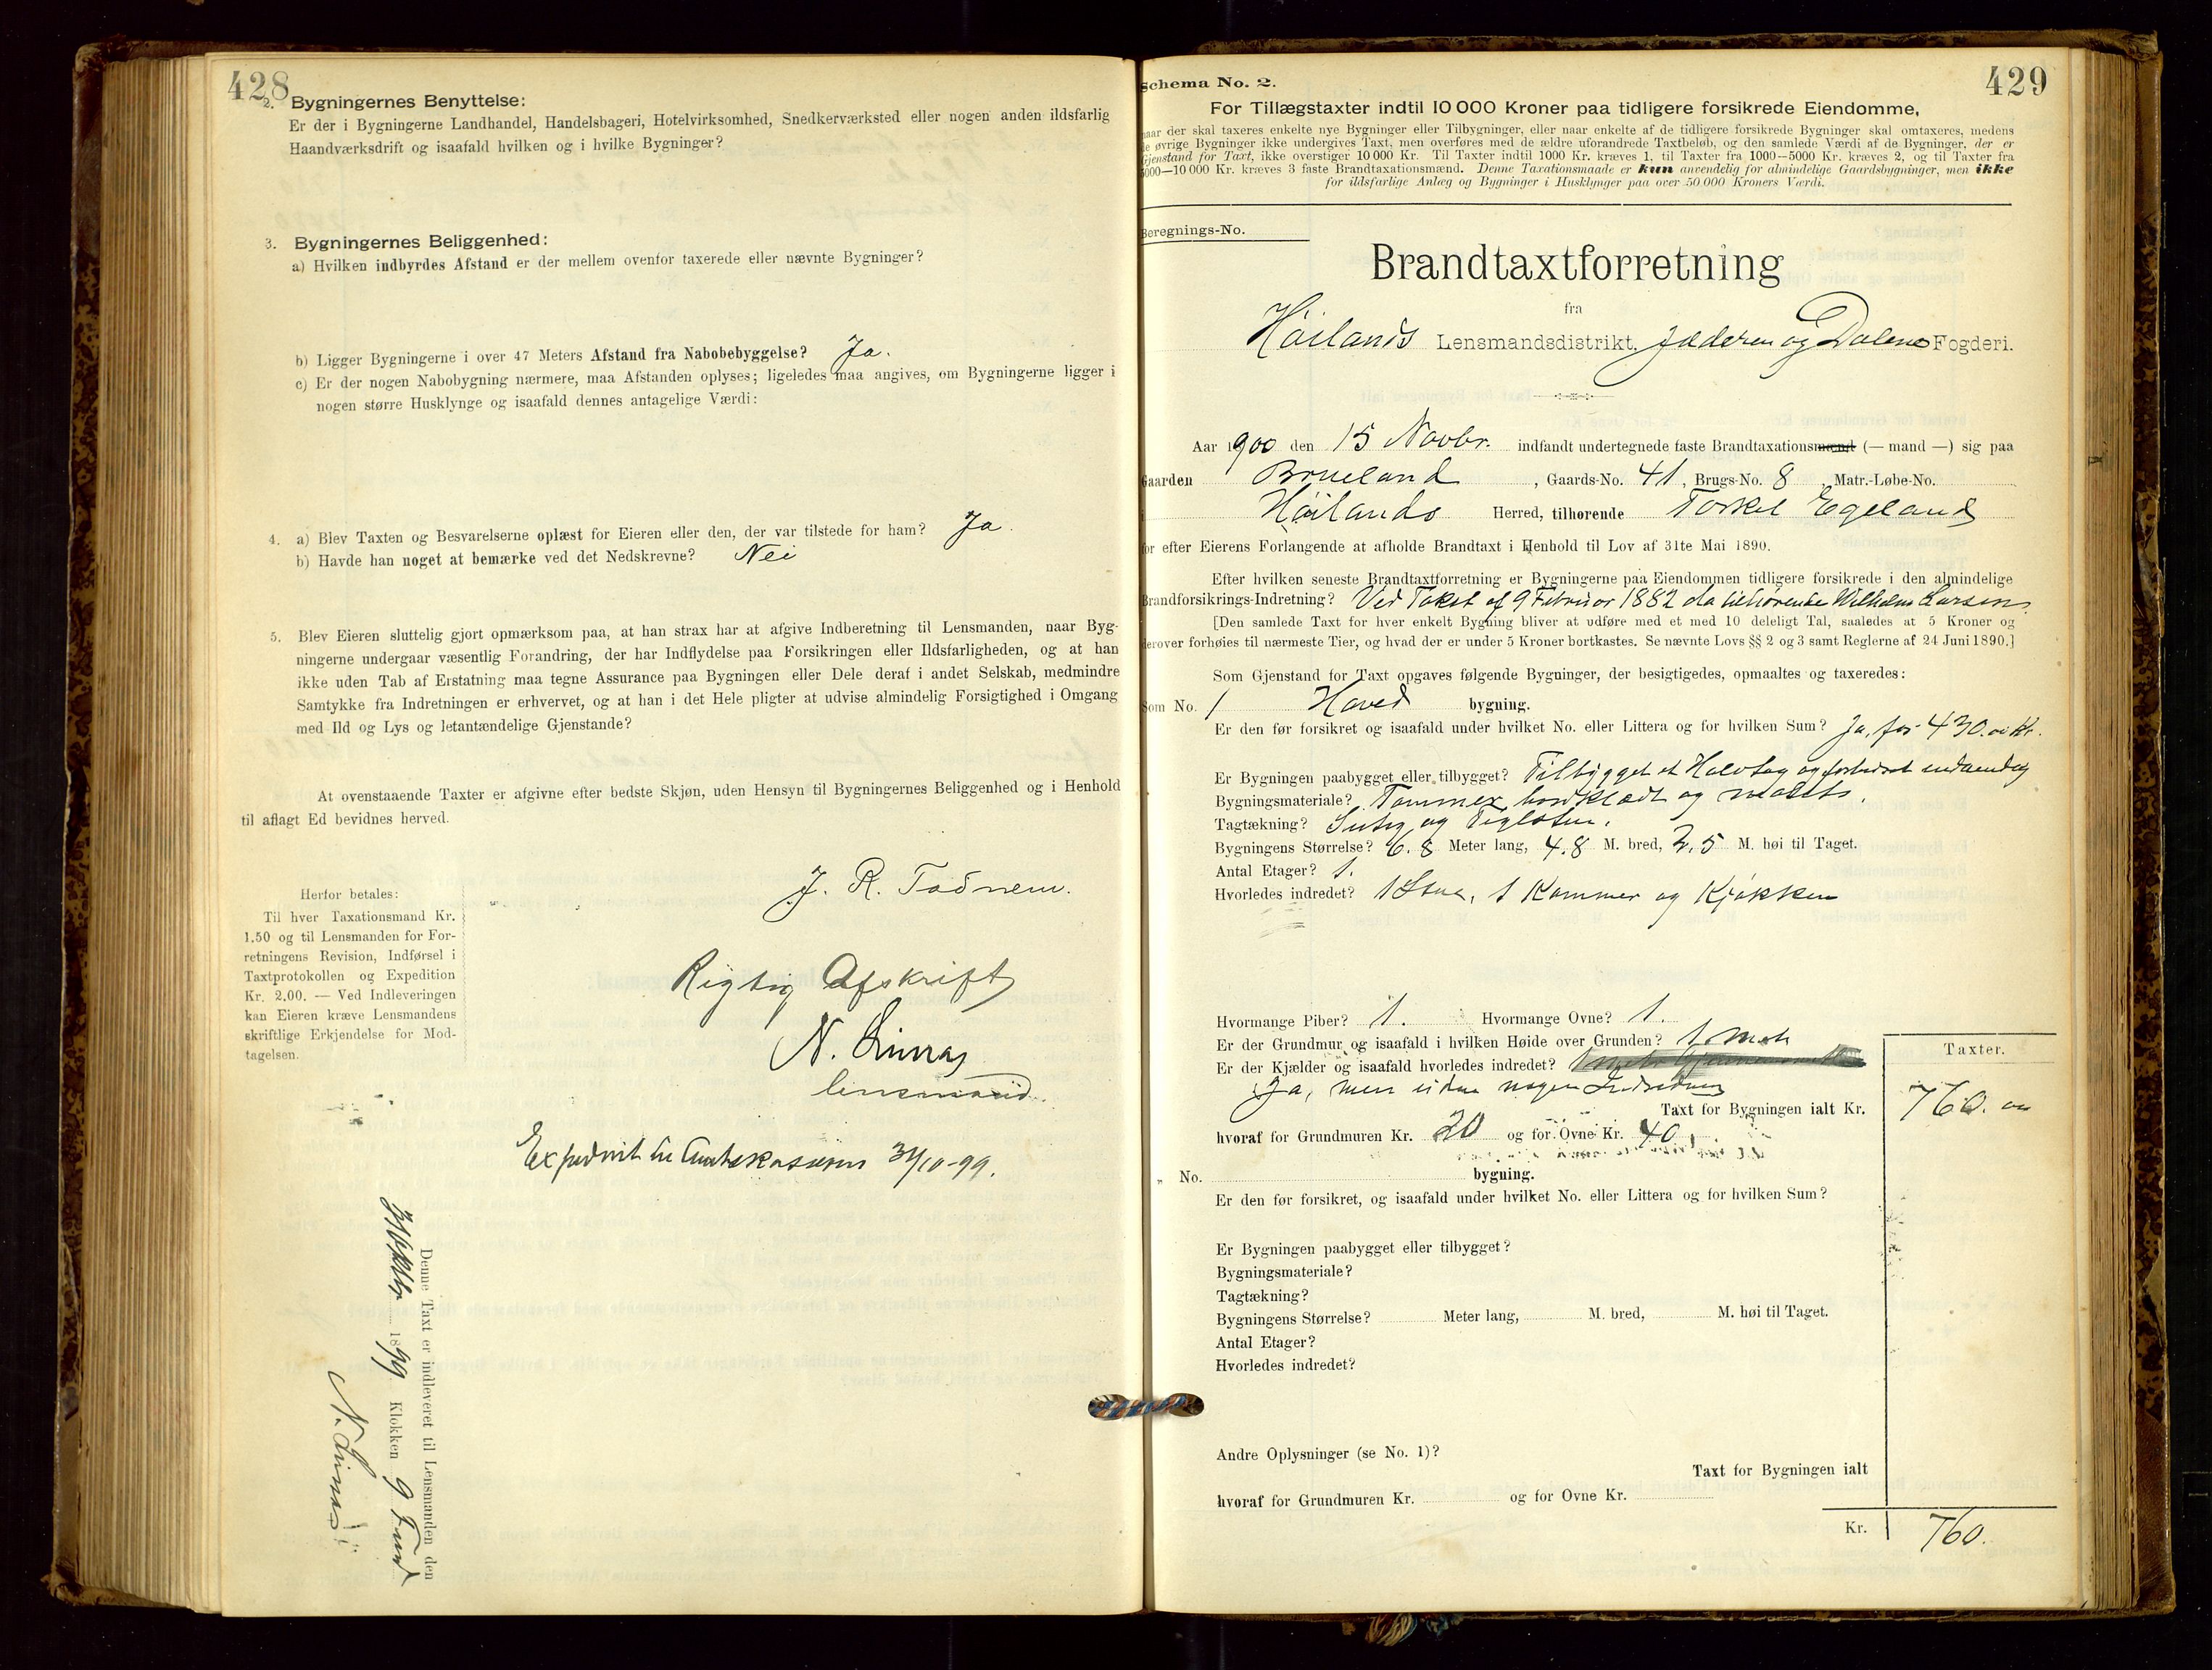 428
2. Bygningernes Benyttelse:
Er der i Bygningerne Landhandel, Handelsbageri, Hotelvirksomhed, Snedkerværksted eller nogen anden ildsfarlig
Haandværksdrift og isaafald hvilken og i hvilke Bygninger?
3. Bygningernes Beliggenhed:
a) Hvilken indbyrdes Afstand er der mellem ovenfor taxerede eller nævnte Bygninger?
b) Ligger Bygningerne i over 47 Meters Afstand fra Nabobebyggelse? Ja.
c) Er der nogen Nabobygning nærmere, maa Afstanden oplyses; ligeledes maa angives, om Bygningerne ligger i
nogen større Husklynge og isaafald dennes antagelige Værdi:
4. a) Blev Taxten og Besvarelserne oplæst for Eieren eller den, der var tilstede for ham? Ja.
b) Havde han noget at bemærke ved det Nedskrevne? Nei
5. Blev Eieren sluttelig gjort opmærksom paa, at han strax har at afgive Indberetning til Lensmanden, naar Byg-
ningerne undergaar væsentlig Forandring, der har Indflydelse paa Forsikringen eller Ildsfarligheden, og at han
ikke uden Tab af Erstatning maa tegne Assurance paa Bygningen eller Dele deraf i andet Selskab, medmindre
Samtykke fra Indretningen er erhvervet, og at han i det Hele pligter at udvise almindelig Forsigtighed i Omgang
med Ild og Lys og letantændelige Gjenstande?
At ovenstaaende Taxter er afgivne efter bedste Skjøn, uden Hensyn til Bygningernes Beliggenhed og i Henhold
til aflagt Ed bevidnes herved.
J. R. Todnem.
Herfor betales:
Til hver Taxationsmand Kr.
1.50 og til Lensmanden for For-
retningens Revision, Indførsel i
Taxtprotokollen og Expedition
Kr. 2.00. — Ved Indleveringen
kan Eieren kræve Lensmandens
skriftlige Erkjendelse for Mod-
tagelsen.
Rigtig Afskrift
N.
lensmand.
31/10-99.
Denne Taxt er indleveret til Lensmanden den
31 Oktbr 1899 Klokken 9 Fmd
N.
429
Schema No. 2.
For Tillægstaxter indtil 10 000 Kroner paa tidligere forsikrede Eiendomme,
naar der skal taxeres enkelte nye Bygninger eller Tilbygninger, eller naar enkelte af de tidligere forsikrede Bygninger skal omtaxeres, medens
de øvrige Bygninger ikke undergives Taxt, men overføres med de ældre uforandrede Taxtbeløb, og den samlede Værdi af de Bygninger, der er
Gjenstand for Taxt, ikke overstiger 10 000 Kr. Til Taxter indtil 1000 Kr. kræves 1, til Taxter fra 1000—5000 Kr. kræves 2, og til Taxter fra
5000—10 000 Kr. kræves 3 faste Brandtaxationsmænd. Denne Taxationsmaade er kun anvendelig for almindelige Gaardsbygninger, men ikke
for ildsfarlige Anlæg og Bygninger i Husklynger paa over 50 000 Kroners Værdi.
Beregnings-No.
Brandtaxtforretning
fra
Høilands Lensmandsdistrikt, Jæderen og Dalene Fogderi.
Aar 1900 den 15 Novbr. indfandt undertegnede faste Brandtaxationsmænd (— mand —) sig paa
Gaarden Brueland, Gaards-No. 41, Brugs-No. 8, Matr.-Løbe-No.
i Høilands Herred, tilhørende Torkel Egeland
for efter Eierens Forlangende at afholde Brandtaxt i Henhold til Lov af 31te Mai 1890.
Efter hvilken seneste Brandtaxtforretning er Bygningerne paa Eiendommen tidligere forsikrede i den almindelige
Brandforsikrings-Indretning? Ved Takst af 9 Februar 1882 da tilhørende Wilhelm Larsen
[Den samlede Taxt for hver enkelt Bygning bliver at udføre med et med 10 deleligt Tal, saaledes at 5 Kroner og
derover forhøies til nærmeste Tier, og hvad der er under 5 Kroner bortkastes. Se nævnte Lovs §§ 2 og 3 samt Reglerne af 24 Juni 1890.]
Som Gjenstand for Taxt opgaves følgende Bygninger, der besigtigedes, opmaaltes og taxeredes:
Som No. 1 Hoved bygning.
Er den før forsikret og isaafald under hvilket No. eller Littera og for hvilken Sum? Ja, for 430.00 Kr.
Er Bygningen paabygget eller tilbygget? Tilbygget et Halvtag og forbedret indvendig
Bygningsmateriale? Tømmer, bordklædt og malet.
Tagtækning? og Teglsten.
Bygningens Størrelse? 6.8 Meter lang, 4.8 M. bred, 2.5 M. høi til Taget.
Antal Etager? 1.
Hvorledes indredet? 1 Stue, 1 Kammer og Kjøkken
Hvormange Piber? 1. Hvormange Ovne? 1.
Er der Grundmur og isaafald i hvilken Høide over Grunden? 1 Met.
Er der Kjælder og isaafald hvorledes indredet?
Ja, men uden nogen Indredning
Taxter.
Taxt for Bygningen ialt Kr. 760.00
hvoraf for Grundmuren Kr. 20 og for Ovne Kr. 40.
" No. bygning.
Er den før forsikret, og isaafald under hvilket No. eller Littera og for hvilken Sum?
Er Bygningen paabygget eller tilbygget?
Bygningsmateriale?
Tagtækning?
Bygningens Størrelse? Meter lang, M. bred, M. høi til Taget.
Antal Etager?
Hvorledes indredet?
Andre Oplysninger (se No. 1)?
Taxt for Bygningen ialt
hvoraf for Grundmuren Kr. og for Ovne Kr.
Kr. 760.